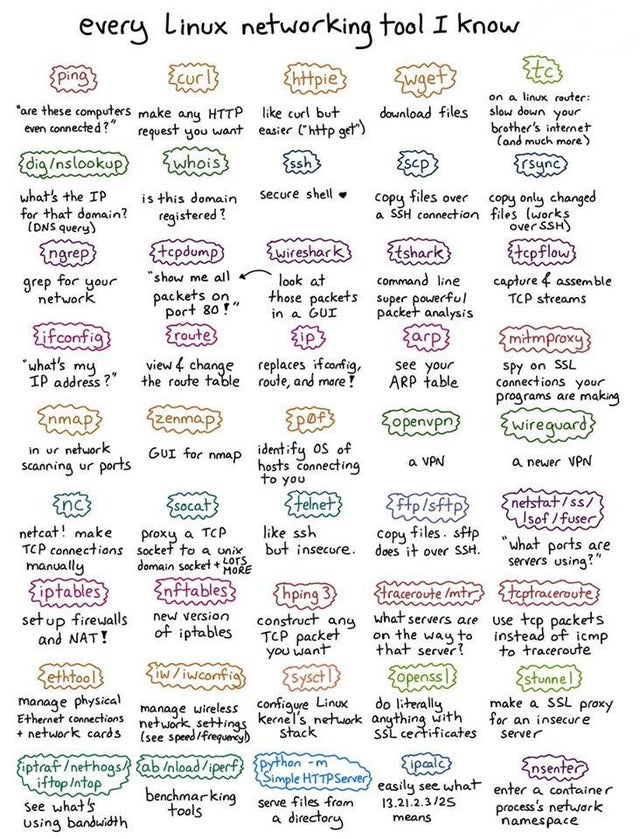 every Linux networking tool I know
ping
"are these computers
even connected?"
curl
make any HTTP
request you want
httpie
like curl but
easier ("http get")
wget
download files
tc
on a linux router:
slow down your
brother's internet
(and much more)
dig/nslookup
what's the IP
for that domain?
(DNS query)
whois
is this domain
registered?
ssh
secure shell ♥
scp
copy files over
a SSH connection
rsync
copy only changed
files (works
over SSH)
ngrep
grep for your
network
tcpdump
"show me all
packets on
port 80!"
wireshark
look at
those packets
in a GUI
tshark
command line
super powerful
packet analysis
tcpflow
capture & assemble
TCP streams
ifconfig
"what's my
IP address?"
route
view & change
the route table
ip
replaces ifconfig,
route, and more!
arp
see your
ARP table
mitmproxy
spy on SSL
connections your
programs are making
nmap
in ur network
scanning ur ports
zenmap
GUI for nmap
pØf
identify OS of
hosts connecting
to you
openvpn
a VPN
wireguard
a newer VPN
nc
netcat! make
TCP connections
manually
socat
proxy a TCP
socket to a unix
domain socket + LOTS
MORE
telnet
like ssh
but insecure.
ftp/sftp
copy files. sftp
does it over SSH.
netstat/ss/
lsof/fuser
"what ports are
servers using?"
iptables
set up firewalls
and NAT!
nftables
new version
of iptables
hping3
construct any
TCP packet
you want
traceroute/mtr
what servers are
on the way to
that server?
tcptraceroute
use tcp packets
instead of icmp
to traceroute
ethtool
manage physical
Ethernet connections
+ network cards
iw/iwconfig
manage wireless
network settings
(see speed/frequency!)
sysctl
configure Linux
kernel's network
stack
openssl
do literally
anything with
SSL certificates
stunnel
make a SSL proxy
for an insecure
server
iptraf/nethogs/
iftop/ntop
see what's
using bandwidth
ab/nload/iperf
benchmarking
tools
python -m
SimpleHTTPServer
serve files from
a directory
ipcalc
easily see what
13.21.2.3/25
means
nsenter
enter a container
process's network
namespace